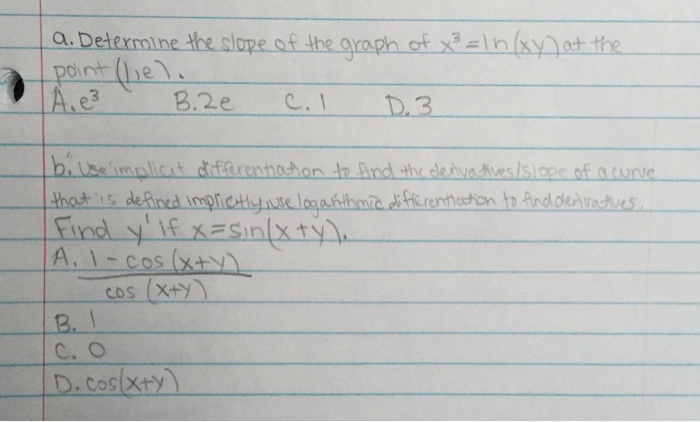 a. Determine the slope of the graph of x³ = ln(xy) at the
point (1,e).
A. e³ B. 2e C. 1 D. 3
b. Use implicit differentiation to find the derivatives/slope of a curve
that is defined implicitly, use logarithmic differentiation to find derivatives.
Find y' if x = sin(x+y).
A. 1 - cos (x+y)
cos (x+y)
B. 1
C. 0
D. cos(x+y)